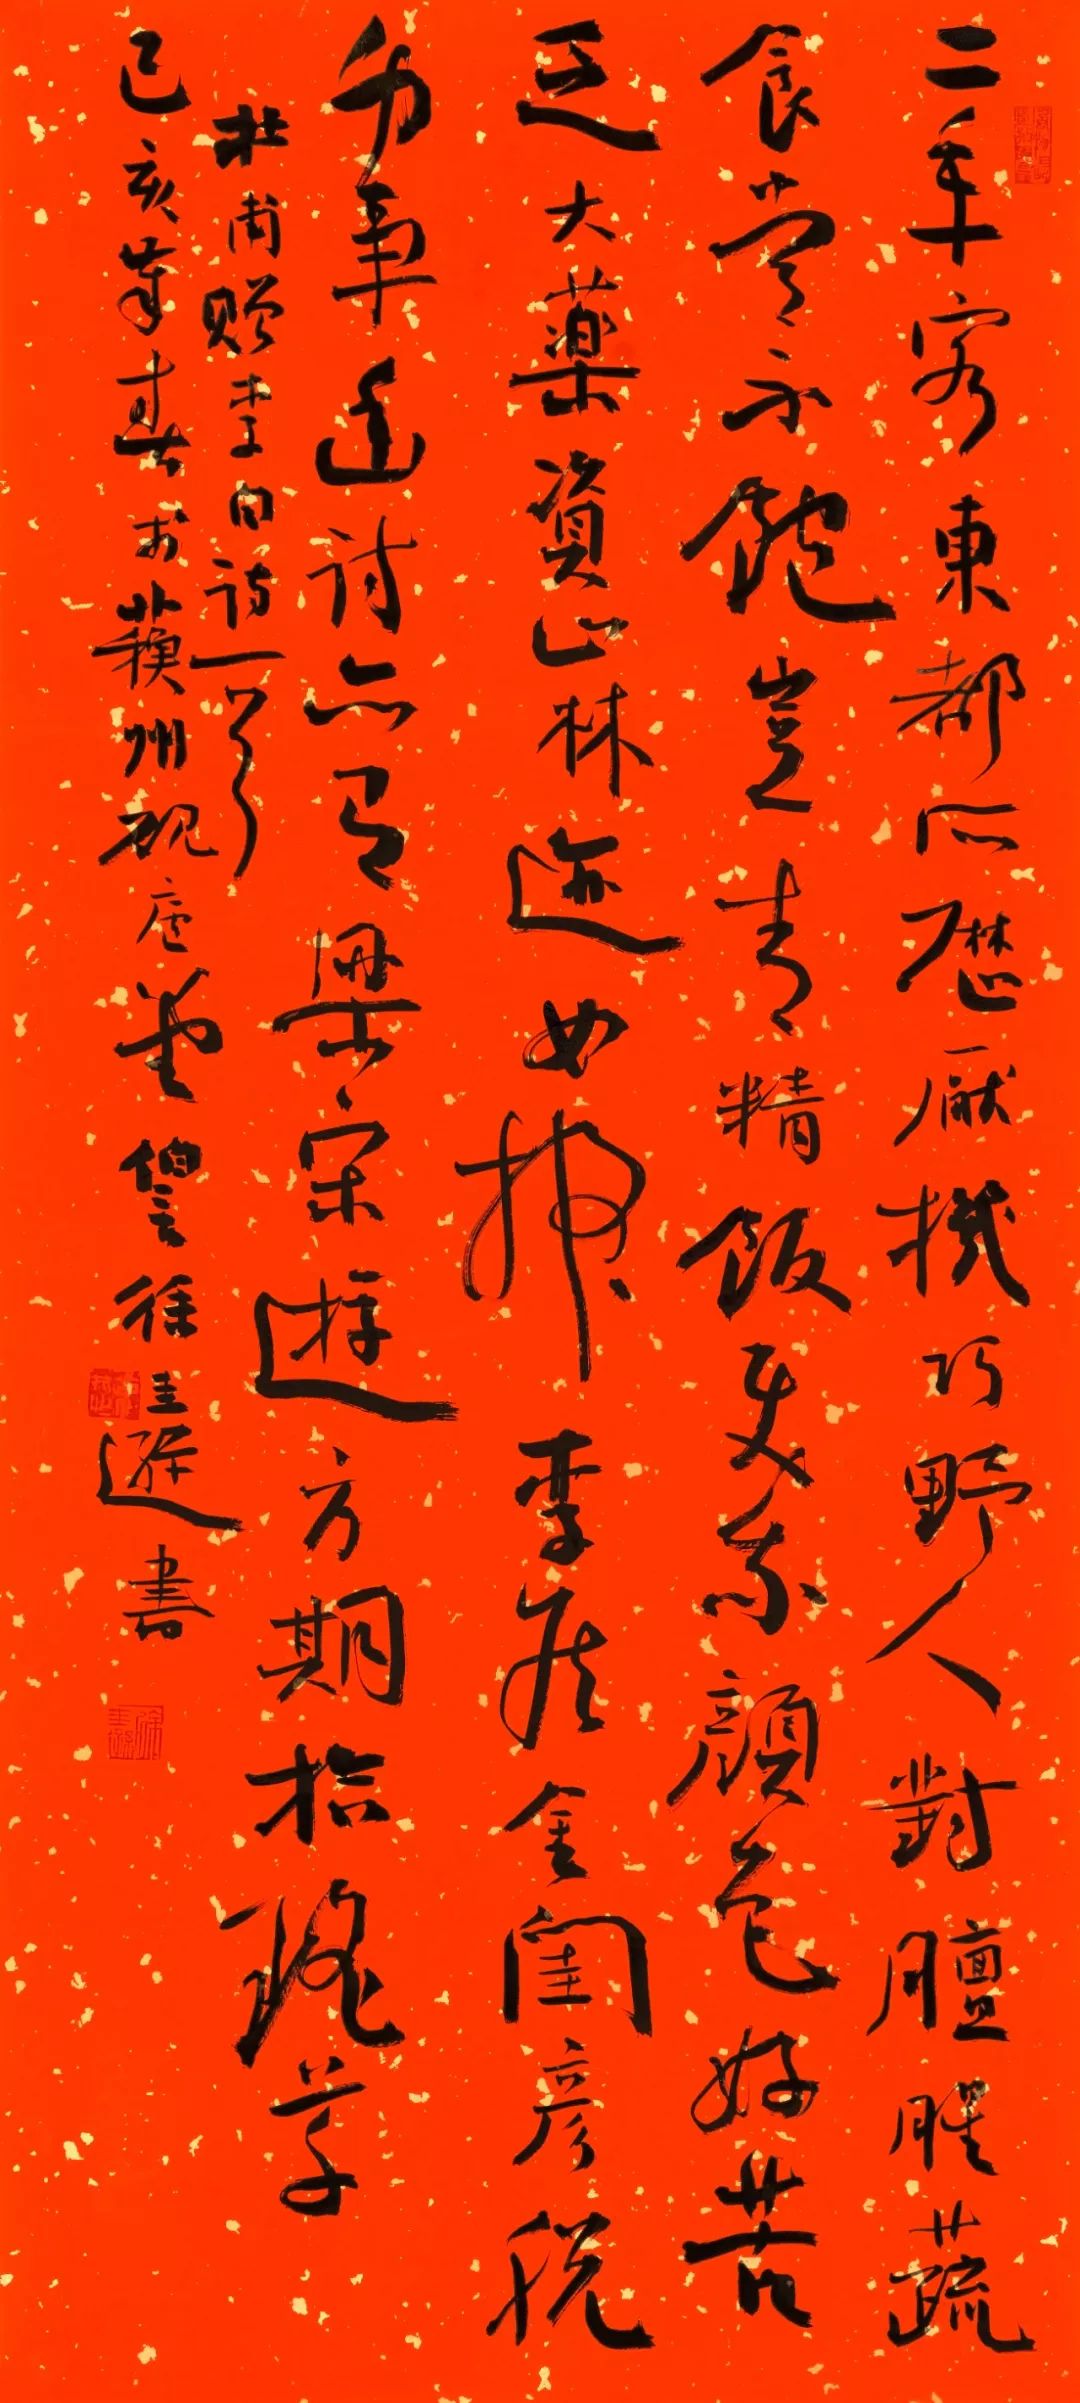 二年客東都所歷厭機巧野人對膻腥蔬
食常不飽豈青精飯使我顏色好苦
乏大藥資山林迹如掃李侯金閨彦脱
身事幽討亦有梁宋遊方期拾瑤草
杜甫贈李白詩一首
己亥春於蘇州硯廬徐圭遜書